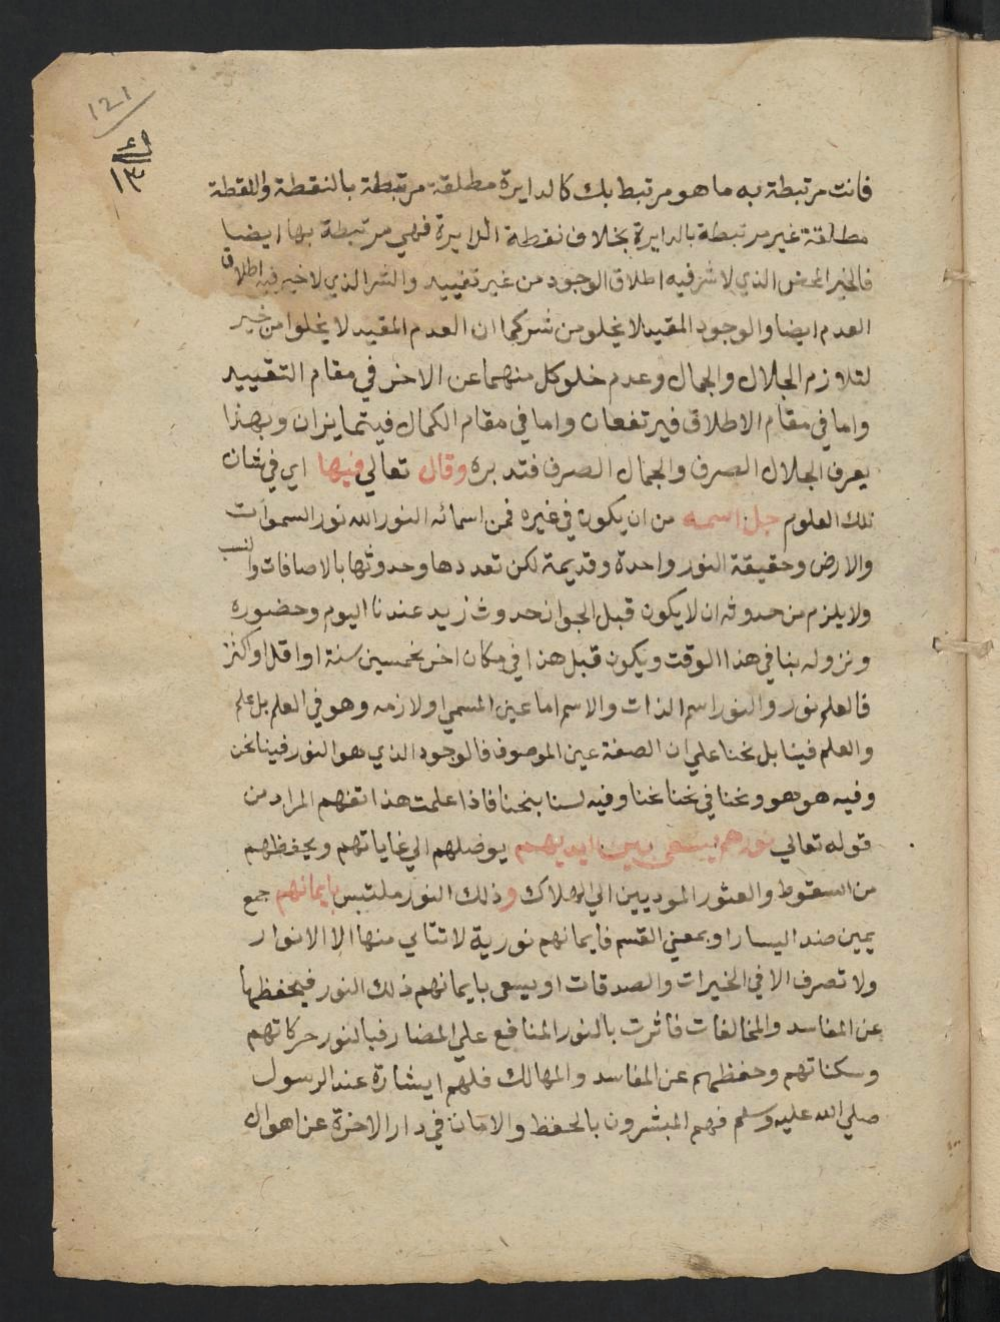 121
فانت مرتبطة به ما هو مرتبط بك كالدايرة مطلقة مرتبطة بالنقطة والنقطة
مطلقة غير مرتبطة بالدايرة بخلاف نقطة الدايرة فهي مرتبطة بها ايضا
فالخير المحض الذي لا شر فيه اطلاق الوجود من غير تقييد والشر الذي لا خير فيه اطلاق
العدم ايضا والوجود المقيد لا يخلو من شر كما ان العدم المقيد لا يخلوا من خير
لتلازم الجلال والجمال وعدم خلو كل منهما عن الاخر في مقام التقييد
واما في مقام الاطلاق فيرتفعان واما في مقام الكمال فيتمايزان وبهذا
يعرف الجلال الصرف والجمال الصرف فتدبره وقال تعالي فيها اي في شان
تلك العلوم جل اسمه من ان يكون في غيره فمن اسمائه النور الله نور السموات
والارض وحقيقة النور واحدة وقديمة لكن تعددها وحدوثها بالاضافات والنسب
ولا يلزم من حدوثه ان لا يكون قبل الجواز حدوث زيد عندنا اليوم وحضوره
ونزوله بنا في هذا الوقت ويكون قبل هذا في مكان اخر بخمسين سنة او اقل او اكثر
فالعلم نور والنور اسم الذات والاسم اما عين المسمي او لازمه وهو في العلم بل علم
والعلم فينا بل نحنا علي ان الصفة عين الموصوف فالوجود الذي هو النور فينا نحن
وفيه هو هو ونحنا في نحنا نحنا وفيه لسنا بنحنا فاذا علمت هذا تفهم المراد من
قوله تعالي نورهم يسعي بين ايديهم يوصلهم الي غاياتهم ويحفظهم
من السقوط والعثور الموديين الي الهلاك وذلك النور ملتبس بايمانهم جمع
يمين ضد اليسار او بمعني القسم فايمانهم نورية لا تتاي منها الا الانوار
ولا تصرف الا في الخيرات والصدقات او يسعي بايمانهم ذلك النور فيحفظها
عن المفاسد والمخالفات فاثرت بالنور المنافع علي المضار فبالنور حركاتهم
وسكناتهم وحفظهم عن المفاسد والمهالك فلهم ايشارة عند الرسول
صلي الله عليه وسلم فهم المبشرون بالحفظ والامان في دار الاخرة عن اهوال